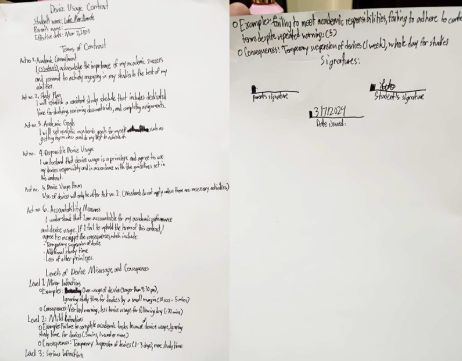 Device Usage Contract
Student's name:
Parent's name:
Effective date: Mar 7, 2024
Terms of Contract
Act no. 1. Academic Commitment
I, (student) acknowledge the importance of my academic success
and commit to actively engaging in my studies to the best of my
abilities.
Act no. 2. Study Plan
I will establish a consistent study schedule that includes dedicated
time for studying, reviewing class materials, and completing assignments.
Act no. 3. Academic Goals
I will set realistic academic goals for myself such as
Act no. 4. Responsible Device Usage
I understand that device usage is a privilege and agree to use
my device responsibly and in accordance with the guidelines set in
this contract.
Act no. 5. Device Usage Hours
Use of device will only be after Act no. 2. (Weekends do not apply unless there are necessary activities)
Act no. 6. Accountability Measures
I understand that I am accountable for my academic performance
and device usage. If I fail to uphold the terms of this contract, I
agree to accept the consequences, which include:
- Temporary suspension of device
- Additional study time
- Loss of other privileges.
Levels of Device Misusage, and Consequences
Level 1: Minor Infraction
O Examples: Over-usage of device (longer than 9:30 pm),
Ignoring study time for studies by a small margin (10 secs - 5 mins)
O Consequences: Verbal warning, less device usage for following day (-30 mins)
Level 2: Mild Infraction
O Examples: Failure to complete academic tasks because of device usage, Ignoring
study time for studies
O Consequences: Temporary suspension of device (1-3 days), more study time
Level 3: Serious Infraction
O Examples: failing to meet academic responsibilities, failing to adhere to contract
terms despite repeated warnings (3)
O Consequences: Temporary suspension of devices (1 week), whole day for studies
Signatures:
parent's signature
Student's signature
3/7/2024
Date issued